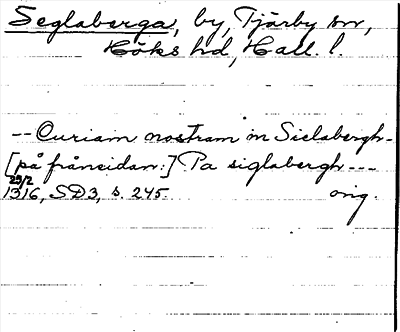 Seglaberga, by, Tjärby sn,
Höks hd, Hall. l.
-- Curiam nostram in Sielabergh -
[på frånsidan:] Pa siglabergh ---
29/2
1316, SD3, s. 245. orig.